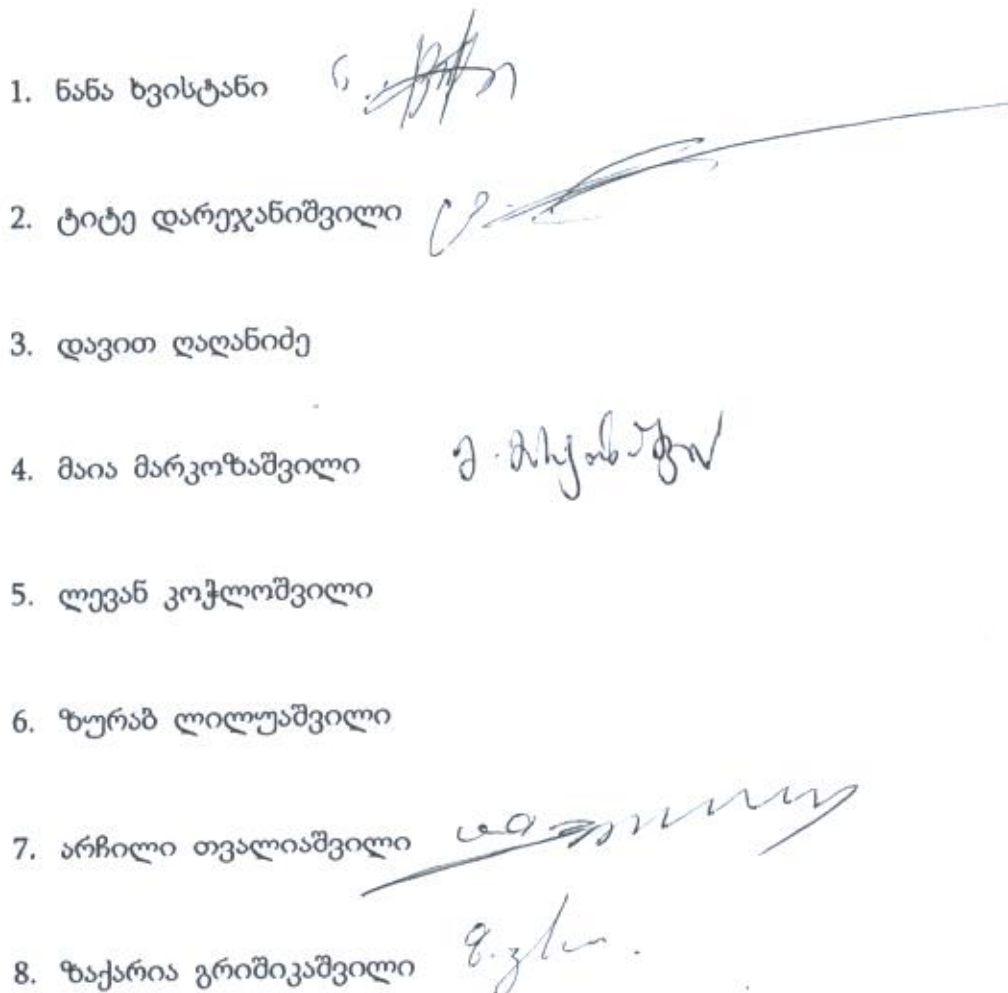 1. ნანა ხვისტანი
2. ტიტე დარეჯანიშვილი
3. დავით ღაღანიძე
4. მაია მარკოზაშვილი
5. ლევან კოჭლოშვილი
6. ზურაბ ლილუაშვილი
7. არჩილი თვალიაშვილი
8. ზაქარია გრიშიკაშვილი